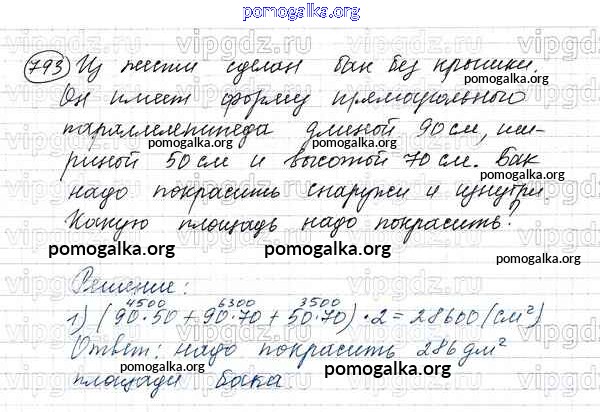 pomogalka.org
793 Из жести сделан бак без крышки.
pomogalka.org
Он имеет форму прямоугольного
pomogalka.org
параллелепипеда длиной 90 см, ши-
pomogalka.org pomogalka.org
риной 50 см и высотой 70 см. Бак
pomogalka.org
надо покрасить снаружи и изнутри.
pomogalka.org
Какую площадь надо покрасить?
pomogalka.org pomogalka.org pomogalka.org
Решение:
4500 6300 3500
1) (90·50 + 90·70 + 50·70)·2 = 28600 (см²)
Ответ: надо покрасить 286 дм²
pomogalka.org pomogalka.org
площади бака.